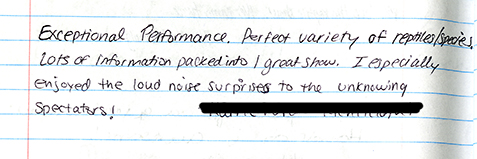 Exceptional Performance. Perfect variety of reptiles/species,
Lots of Information packed into 1 great show. I especially
enjoyed the loud noise surprises to the unknowing
Spectaters!